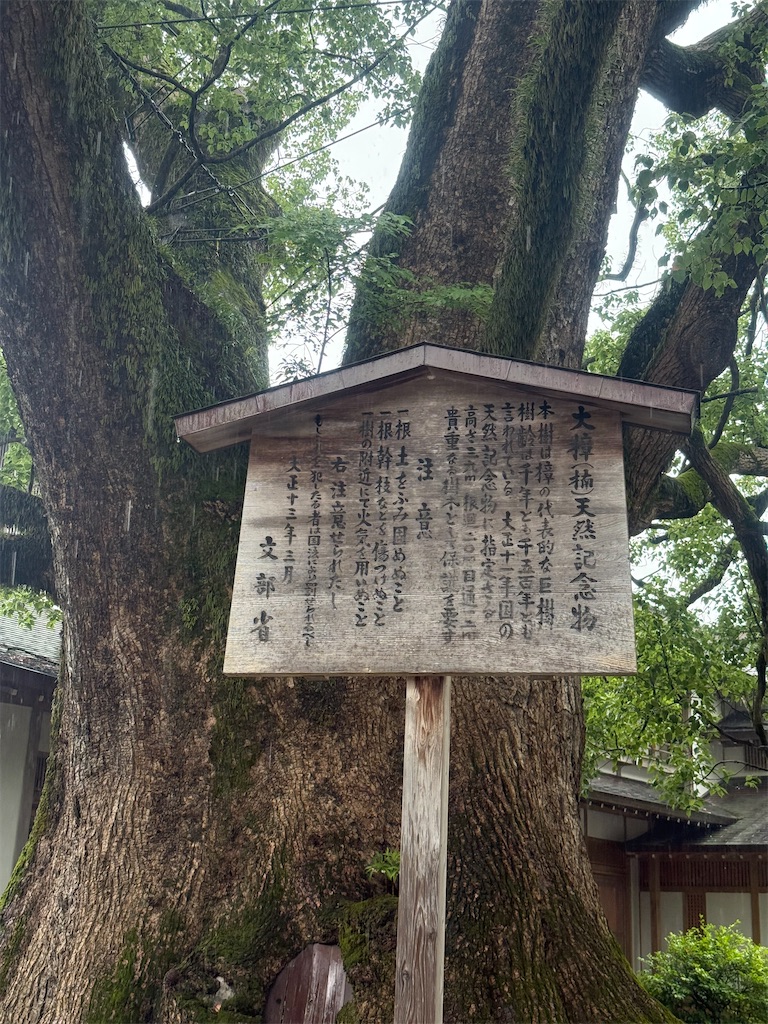 大樟(楠)天然記念物
本樹は樟の代表的な巨樹
樹齢は千年とも千五百年とも
言われている 大正十一年国の
天然記念物に指定さる
高さ 米 根廻二〇 目通一二
貴重な樹木として保護を要す
注意
一根土をふみ固めぬこと
一根幹枝などを傷つけぬこと
一樹の附近にて火気を用いぬこと
右 注意せられたし
もし 犯したる者は国法により罰せらるべし
大正十三年三月
文部省